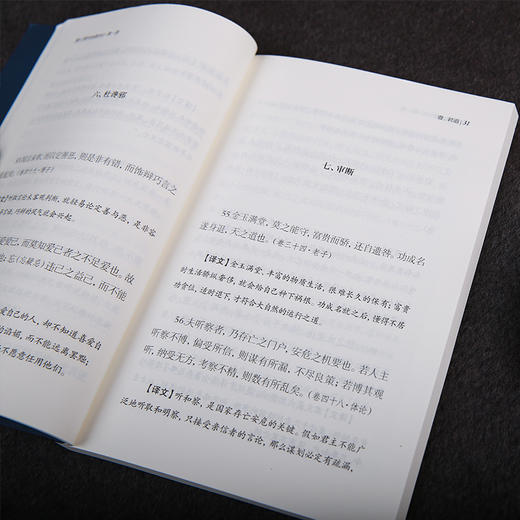 六、杜谗邪
则是非有错，而饰辩巧言之
爱己，而莫知爱己者之不足爱也。故
违己之益己，而不能
爱自己的人，却不知道喜爱自
不愿意任用他们。
31
七、审断
55.金玉满堂，莫之能守，富贵而骄，还自遗咎。功成名
遂身退，天之道也。（卷三十四·老子）
【译文】金玉满堂，丰富的物质生活，很难长久的保有；富贵
时生活骄纵奢侈，就会给自己种下祸根。功成名就之后，懂得不居
功贪位，适时退下，才符合大自然的运行之道。
56.夫听察者，乃存亡之门户，安危之机要也。若人主
听察不博，偏受所信，则谋有所漏，不尽良策；若博其观
听，纳受无方，考察不精，则数有所乱矣。（卷四十八·体论）
【译文】听和察，是国家存亡安危的关键。假如君主不能广
泛地听取和明察，只接受亲信者的言论，那么谋划必定有疏漏，